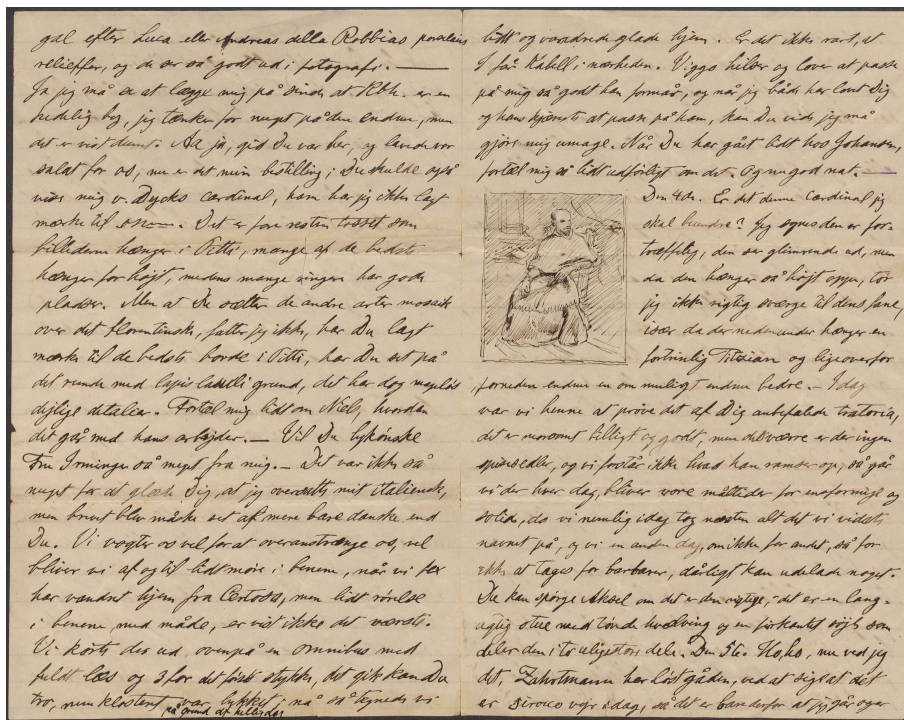 gal efter Luca eller Andreas della Robbias porcelains
relieffer, og de ser så godt ud i fotografi. —
Ja jeg må se at lægge mig på sinde at Kbh. er en
hedelig by, jeg tænker for meget på den endnu, men
det er vist dumt. Aa ja, gid Du var her, og lavede vor
salat for os, nu er det min bestilling; Du skulde også
vise mig v. Dycks cardinal, ham har jeg ikke lagt
mærke til. Det er forresten tosset som
billederne hænger i Pitti, mange af de bedste
hænger for højt, medens mange ringere har gode
pladser. Men at De sætter de andre arter mosaik
over det florentinske, fatter jeg ikke, har Du lagt
mærke til de bedste borde i Pitti, har Du set på
det runde med lapis lazulli grund, det har dog mageløs
dejlige detalier. Fortæl mig lidt om Niels, hvordan
det går med hans arbejder. — Vil Du lykønske
Fru Irminger så meget fra mig. — Det var ikke så
meget for at glæde Dig, at jeg oversatte mit italiensk,
men brevet blev måske set af mere bare danske end
Du. Vi vogter os vel for at overanstrænge os, vel
bliver vi af og til lidt møre i benene, når vi fex
har vandret hjem fra Certosa, men lidt rørelse
i benene, med måde, er vist ikke det værste.
Vi kørte der ud ovenpå en omnibus med
fuldt læs og 3 for det første stykke, det gik kan Du
tro, men klosteret var lukket, nå så tegnede vi
på grund af helligdag
lidt og vandrede glade hjem. Er det ikke rart, at
I får Kabell i nærheden. Viggo hilser og lover at passe
på mig så godt han formår, og når jeg både har lovt Dig
og hans kjæreste at passe på ham, kan Du vide jeg må
gjøre mig umage. Når Du har gået lidt hos Johansen,
fortæl mig så lidt udførligt om det. Og nu god nat. —
Den 4de. Er det denne cardinal jeg
skal beundre? Jeg synes den er for-
træffelig, den ser glimrende ud, men
da den hænger så højt oppe, tør
jeg ikke rigtig sværge til dens fane,
især da der nedenunder hænger en
fortrinlig Titzian og ligeoverfor
forneden endnu en om muligt endnu bedre. — Idag
var vi henne at prøve det af Dig anbefalede tratoria,
det er morsomt billigt og godt, men desværre er der ingen
spisesedler, og vi forstår ikke hvad han ramser op, så går
vi der hver dag, bliver vore måltider for ensformige og
solide, da vi nemlig idag tog næsten alt det vi vidste
navnet på, og vi en anden dag, om ikke for andet, så for
ikke at tages for barbarer, dårligt kan udelade noget.
Du kan spørge Aksel om det er den rigtige, det er en lang-
agtig stue med tønde hvælving og en firkantet søjle som
deler den i to uligestore dele. Den 5te. Ho, ho, nu ved jeg
det, Zahrtmann har løst gåden, ved at sige at det
er Sirocco vejr idag, så det er banderfor at jeg går og er